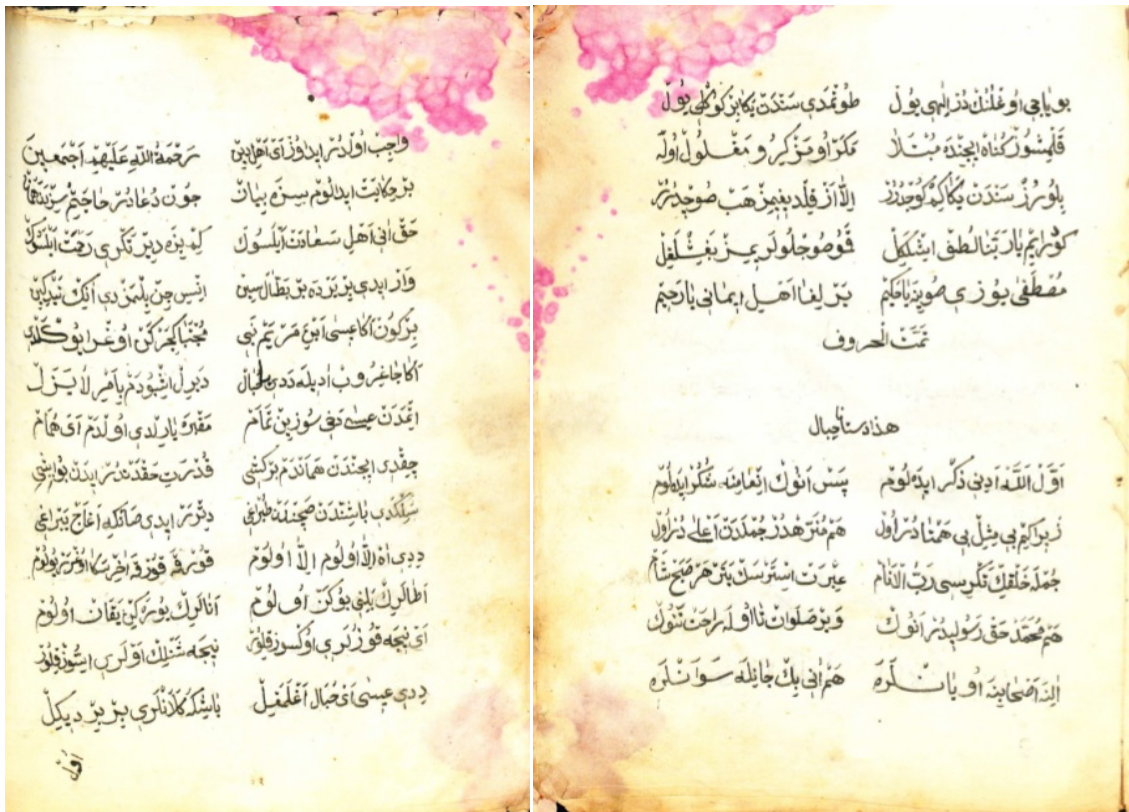 بو ياجى اوغلنك دز الهى يول طوتمدى سندن يكا بر كوكلى يول
قلمشوز كناه ايچنده مبتلا مكر او مزكر و مغلول اوله
بلورز سندن يكا كم كوجدرز الا از قلديغيمز هب صوچدرز
كو رايم يا ربنا لطف اشكل قو صوچلولريمز بغشلغل
مصطفى يوزى صويچ يا حكيم بزلغا اهل ايمانى يا رحيم
تمت الحروف
هذا دستان جبال
اول الله ادنى ذكر ايده لوم پس انوك انعامنه شكر ايده لوم
زيرا كيم بى مثل بى همتا در اول هم منزهدر جمله دن اعلى در اول
جمله خلقك تكريسى رب الانام عبرت استرسك يتر هر صبح شام
هم محمد حق رسوليدر انوك وير صلوات تا اوله راحت تنوك
النه اصحابنه اويانلره هم انى بك جانله سوانلره
واجب اولدر ايداوز اى اهل دين رحمة الله عليهم اجمعين
بر حكايت ايدالوم سزه بيان چون دعادر حاجتم سزدن همان
حق انى اهل سعادت ايلسون كم بزه دير تكرى رحمت ايلسون
وار ايدى بر يرده بر بطال سين انس جن بلمزدى انك نيدكين
بر كون اكا عيسى ابن مريم نبى مجتبا كچركن اوغرا يو كلدى
اكا چاغروب اديله ددى يا جبال دبرل اشبودم بامر لا يزل
اتمدن عيسى دخى سوزين تمام مقبره ياريلدى اولدم اى همام
چقدى ايچندن هماندم بر كشى قدرت حقدندر ايدن بو ايشى
سلكدى باشندن صچندن طبراغى دتر ايدى صانكه اغاج يبراغى
ددى اه الا اولوم الا اولوم قورقو قورقو اخر بكا اوغرر بو لوم
اطالرك بلنى بوكن اولوم انالرك يوره كين يقان اولوم
اى نيجه قوزلرى اوكسوز قلور نيجه شنلك اولرى اسسوز قلور
ددى عيسى اى جبال اغلمغل باشكه كلانلرى بر بر ديكل
اول